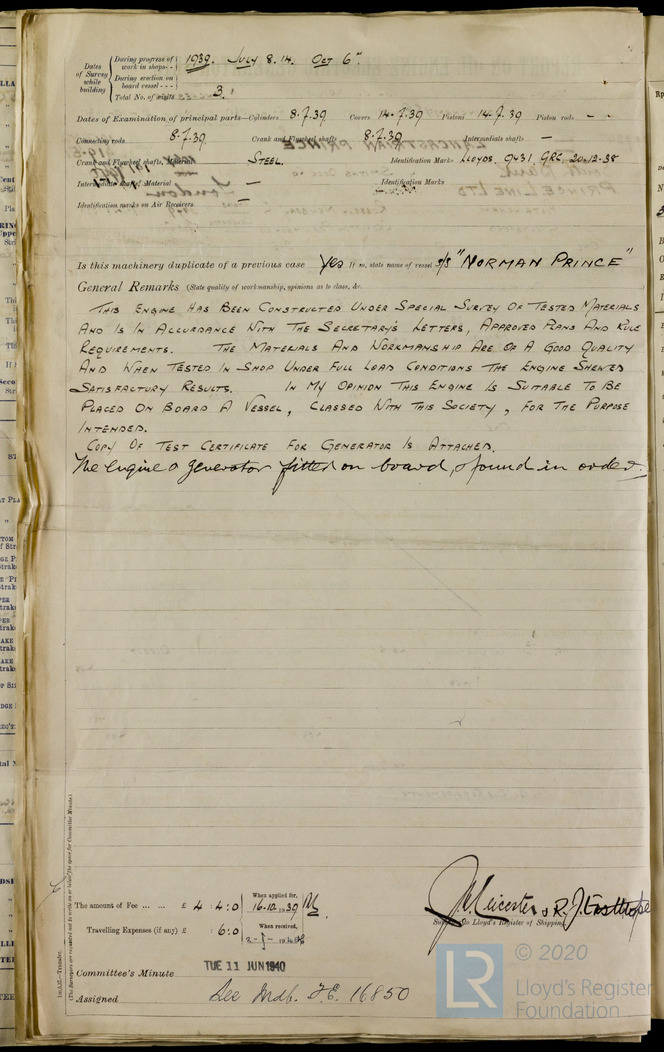 Dates of Survey while building
During progress of work in shops - - 1939. July 8. 14. Oct 6th
During erection on board vessel - - -
Total No. of visits 3.
Dates of Examination of principal parts—Cylinders 8.7.39 Covers 14.7.39 Pistons 14.7.39 Piston rods - -
Connecting rods 8.7.39. Crank and Flywheel shafts 8.7.39 Intermediate shafts —
Crank and Flywheel shafts, Material STEEL. Identification Marks LLOYDS. 9431. GRL. 20-12-38
Intermediate shafts, Material — Identification Marks —
Identification marks on Air Receivers —
Is this machinery duplicate of a previous case Yes If so, state name of vessel "NORMAN PRINCE"
General Remarks (State quality of workmanship, opinions as to class, &c.
THIS ENGINE HAS BEEN CONSTRUCTED UNDER SPECIAL SURVEY OF TESTED MATERIALS
AND IS IN ACCORDANCE WITH THE SECRETARY'S LETTERS, APPROVED PLANS AND RULE
REQUIREMENTS. THE MATERIALS AND WORKMANSHIP ARE OF A GOOD QUALITY
AND WHEN TESTED IN SHOP UNDER FULL LOAD CONDITIONS THE ENGINE SHEWED
SATISFACTORY RESULTS. IN MY OPINION THIS ENGINE IS SUITABLE TO BE
PLACED ON BOARD A VESSEL, CLASSED WITH THIS SOCIETY, FOR THE PURPOSE
INTENDED.
COPY OF TEST CERTIFICATE FOR GENERATOR IS ATTACHED.
The engine & generator fitted on board, & found in order.
The amount of Fee ... ... £ 4 : 4 : 0 When applied for, 16.12.1939
Travelling Expenses (if any) £ : 6 : 0 When received,
J. Leicester & R. J. Easthope
Surveyor to Lloyd's Register of Shipping
Committee's Minute TUE 11 JUN 1940
Assigned See Mdb. F.E. 16850
© 2020
LR
Lloyd's Register
Foundation